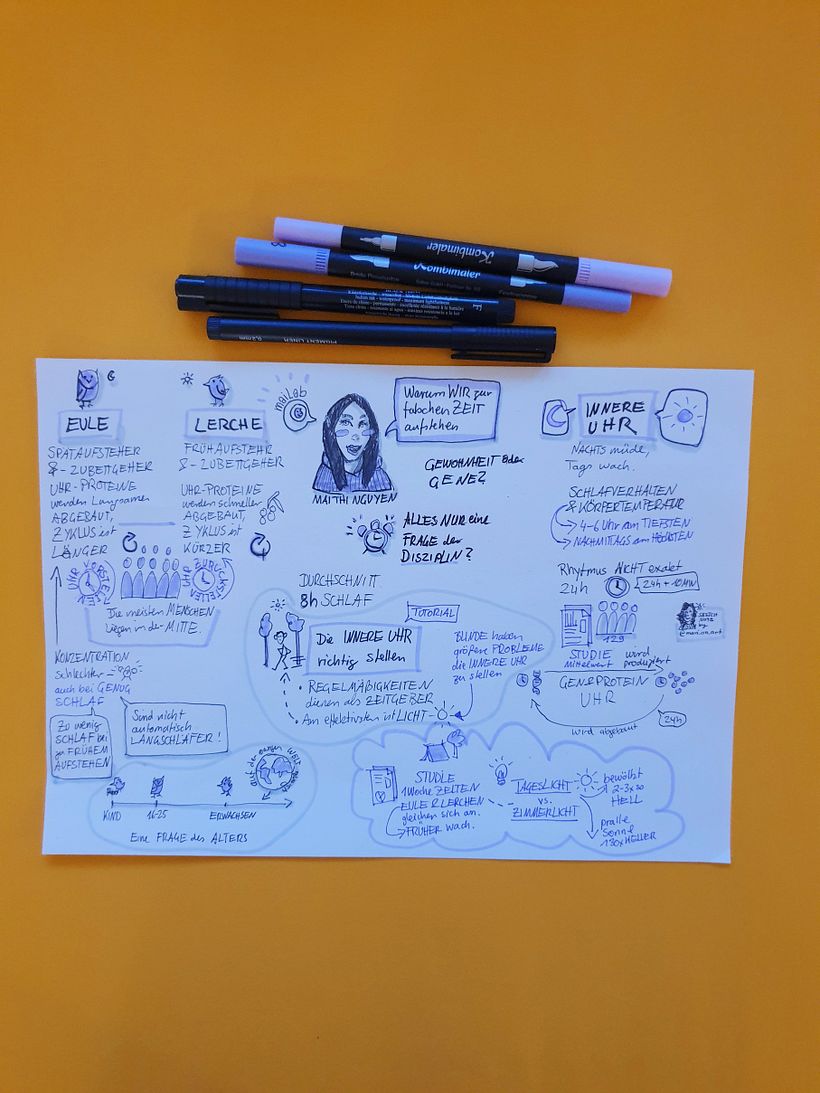 Kombimaler
Kombimaler
F
PIGMENT LINER
0,2mm
EULE
SPÄTAUFSTEHER
& -ZUBETTGEHER
UHR-PROTEINE
werden langsamer
ABGEBAUT,
ZYKLUS ist
LÄNGER
LERCHE
FRÜHAUFSTEHR
& -ZUBETTGEHER
UHR-PROTEINE
werden schneller
ABGEBAUT,
ZYKLUS ist
KÜRZER
UHR VORSTELLEN
UHR ZURÜCKSTELLEN
Die meisten MENSCHEN
liegen in der MITTE.
KONZENTRATION
schlechter
auch bei GENUG
SCHLAF
Zu wenig
SCHLAF bei
zu FRÜHEM
AUFSTEHEN
Sind nicht
automatisch
LANGSCHLÄFER!
auf der ganzen Welt gleich
KIND
16-25
ERWACHSEN
Eine FRAGE des ALTERS
maiLab
MAI THI NGUYEN
Warum WIR zur
falschen ZEIT
aufstehen
GEWOHNHEIT oder
GENE?
ALLES NUR eine
FRAGE der
DISZIPLIN?
DURCHSCHNITT
8h SCHLAF
TUTORIAL
Die INNERE UHR
richtig stellen
• REGELMÄßIGKEITEN
dienen als ZEITGEBER
• Am effektivsten ist LICHT
BLINDE haben
größere PROBLEME
die INNERE UHR
zu stellen
STUDIE
1 Woche ZELTEN
EULE & LERCHEN
gleichen sich an.
FRÜHER wach.
TAGESLICHT
vs.
ZIMMERLICHT
bewölkt
2-3x so
HELL
pralle
Sonne
130x HELLER
INNERE
UHR
NACHTS müde,
Tags wach.
SCHLAFVERHALTEN
& KÖRPERTEMPERATUR
4-6 Uhr am TIEFSTEN
NACHMITTAGS am HÖCHSTEN
Rhytmus NICHT exakt
24h
24h + 10MIN
129
STUDIE
mittelwert
wird
produziert
GEN & PROTEIN
UHR
wird abgebaut
24h
SKETCH
NOTE
by
@mari.on.art